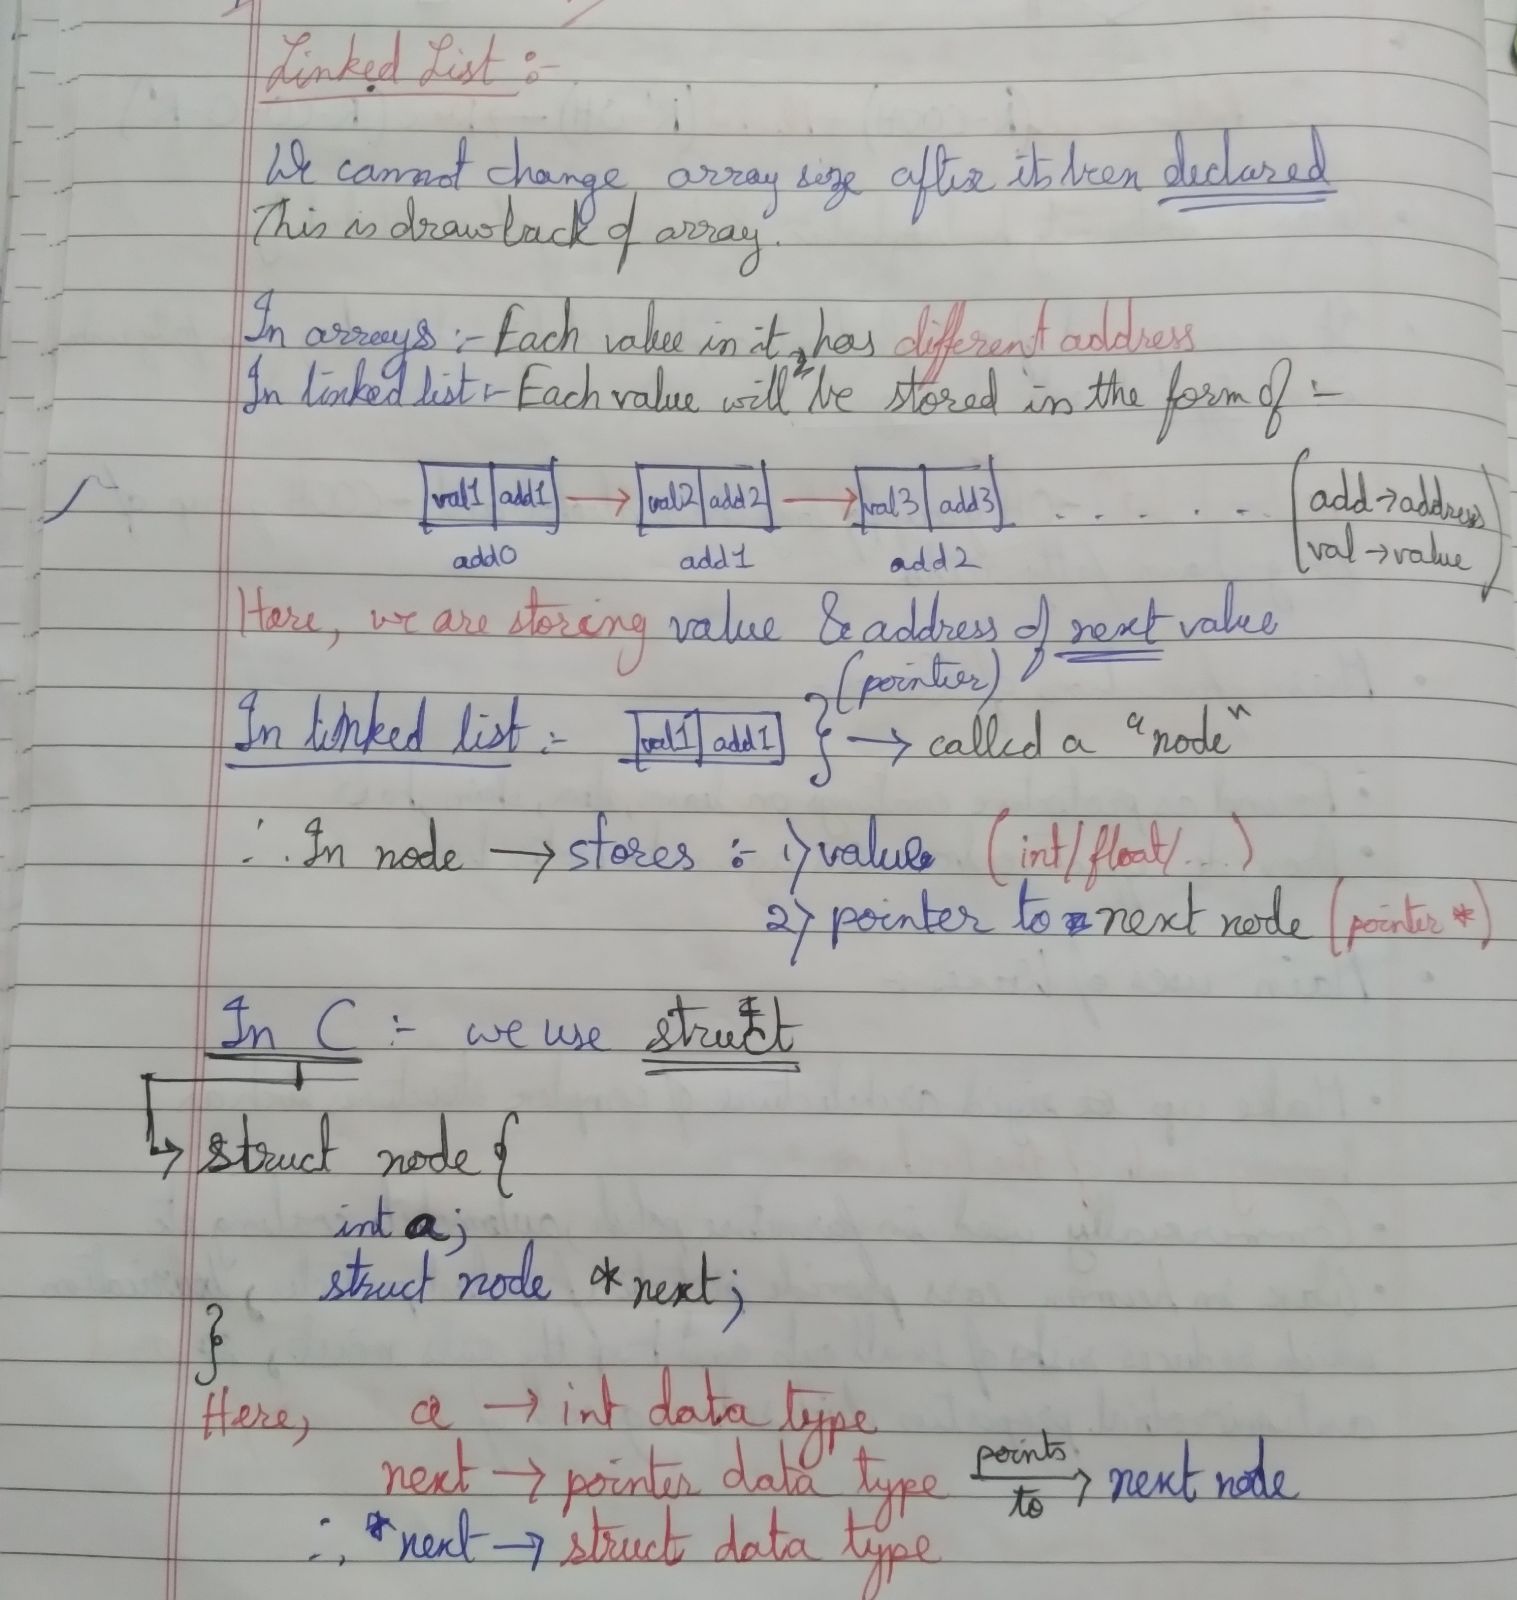 Linked List :-
We cannot change array size after its been declared
This is drawback of array.
In arrays :- Each value in it has different address
In linked list :- Each value will be stored in the form of :-
val1 add1 → val2 add2 → val3 add3 . . . . . . (add→address
add0 add1 add2 val→value)
Here, we are storing value & address of next value
(pointer)
In linked list :- val1 add1 } → called a "node"
∴ In node → stores :- 1) value (int/float/...)
2) pointer to next node (pointer *)
In C :- we use struct
→ struct node {
int a;
struct node *next;
}
Here, a → int data type
next → pointer data type points to → next node
∴ *next → struct data type